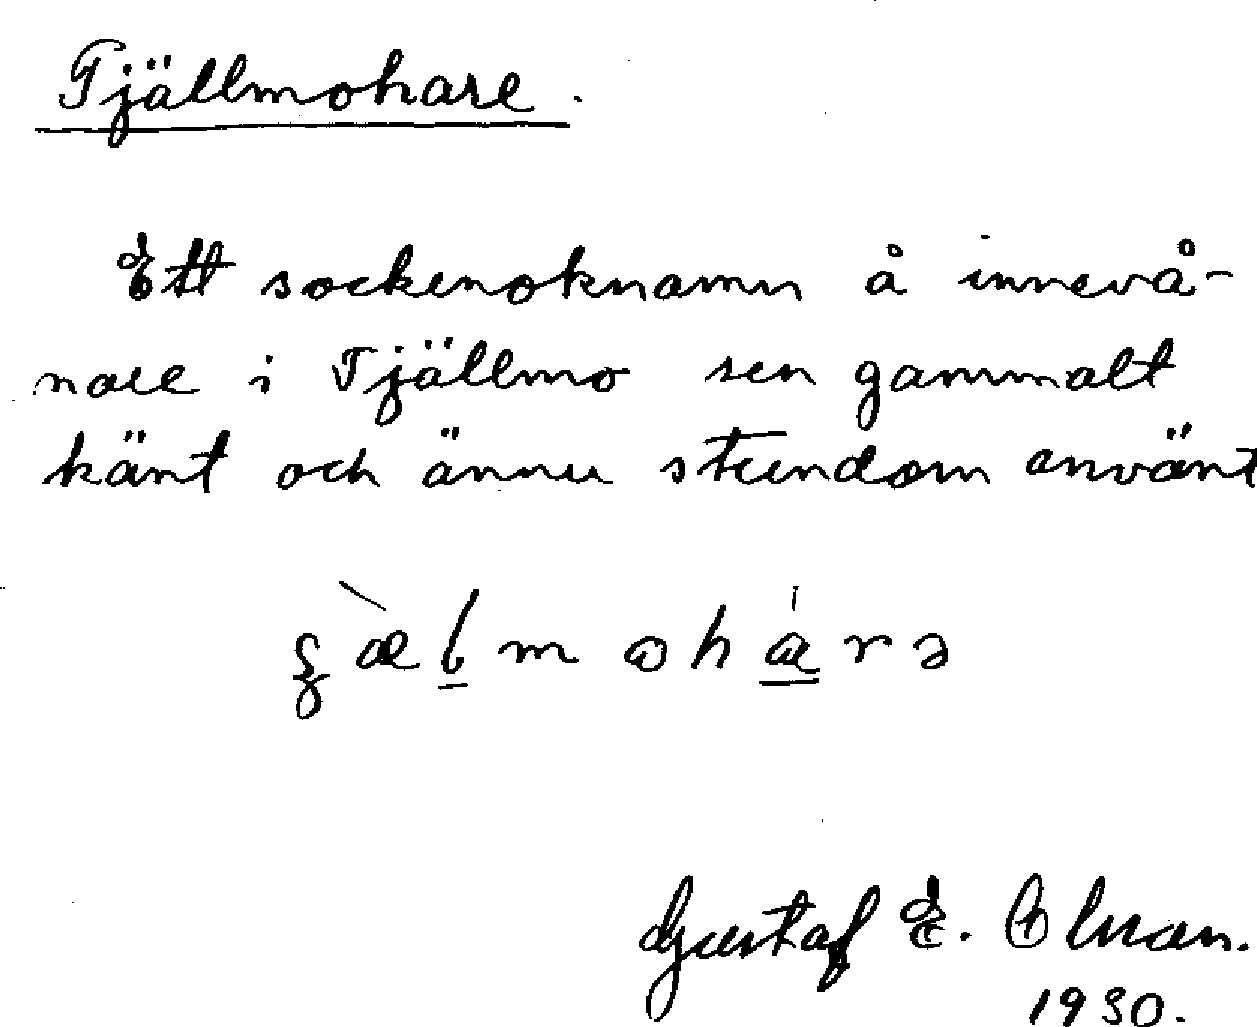 Tjällmohare.
Ett sockenoknamn å innevå-
nare i Tjällmo sen gammalt
känt och ännu stundom använt
Gustaf E.
1930.